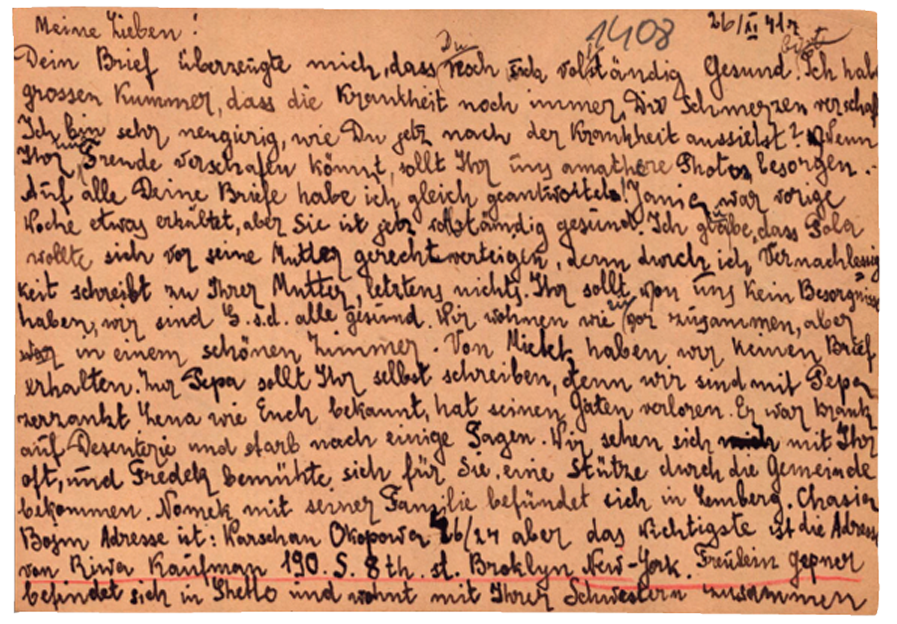 Meine Lieben! 1408 26/XI 41r
Dein Brief überzeugte mich, dass Du noch vollständig Gesund bist. Ich habe
grossen Kummer, dass die Krankheit noch immer Dir Schmerzen verschaf
Ich bin sehr neugürig, wie Du jetz nach der Krankheit aussiehst? Wenn
Ihr uns Freude verschafen könnt, sollt Ihr üns besorgen.
Auf alle Deine Briefe habe ich gleich geantwortet! Janic war vorige
Woche etwas erkältet, aber Sie ist jetz vollständig gesünd. Ich glaube, dass Pola
wollte sich vor seine Mutter gerechtwerteigen, denn durch ich Vernachlässig
keit schreibt zu Ihrer Mutter, letztens nichts. Ihr sollt von üns kein Besorgnisse
haben, wir sind G.s.d. alle gesünd. Wir wohnen wie zuvor zusammen, aber
in einem schönen Zimmer. Von Mietek haben wir keinen Brief
erhalten. Zur Pepa sollt Ihr selbst schreiben, denn wir sind mit Pepa
zerzankt. Lena wie Euch bekannt, hat seinen Gaten verloren. Er war krank
auf Desenterie und starb nach einige Tagen. Wir sehen sich mit Ihr
oft, und Fredek bemühte sich für Sie eine Stütze durch die Gemeinde
bekommen. Nomek mit seiner Familie befündet sich in Lemberg. Chasia
Bojm Adresse ist: Warschau Okopowa 26/24 aber das Wichtigste ist die Adresse
von Riwa Kaufman 190. S. 8th. st. Broklyn New-York. Freülein Gepner
befindet sich in Ghetto und wohnt mit Ihrer Schwestern zusammen